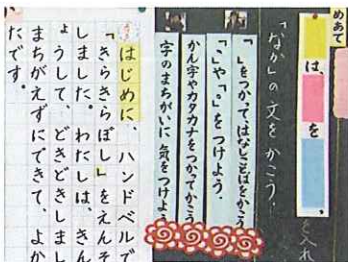 めあて
は、
を
、
と入れ
「なか」の文をかこう！
「 」をつかって、はなしことばをかこう
「、」や「。」をつけよう。
かん字やカタカナをつかってかこう
字のまちがいに気をつけよう
はじめに、ハンドベルで
「きらきらぼし」をえんそ
しました。わたしは、きん
ょうして、どきどきしまし
まちがえずにできて、よか
たです。